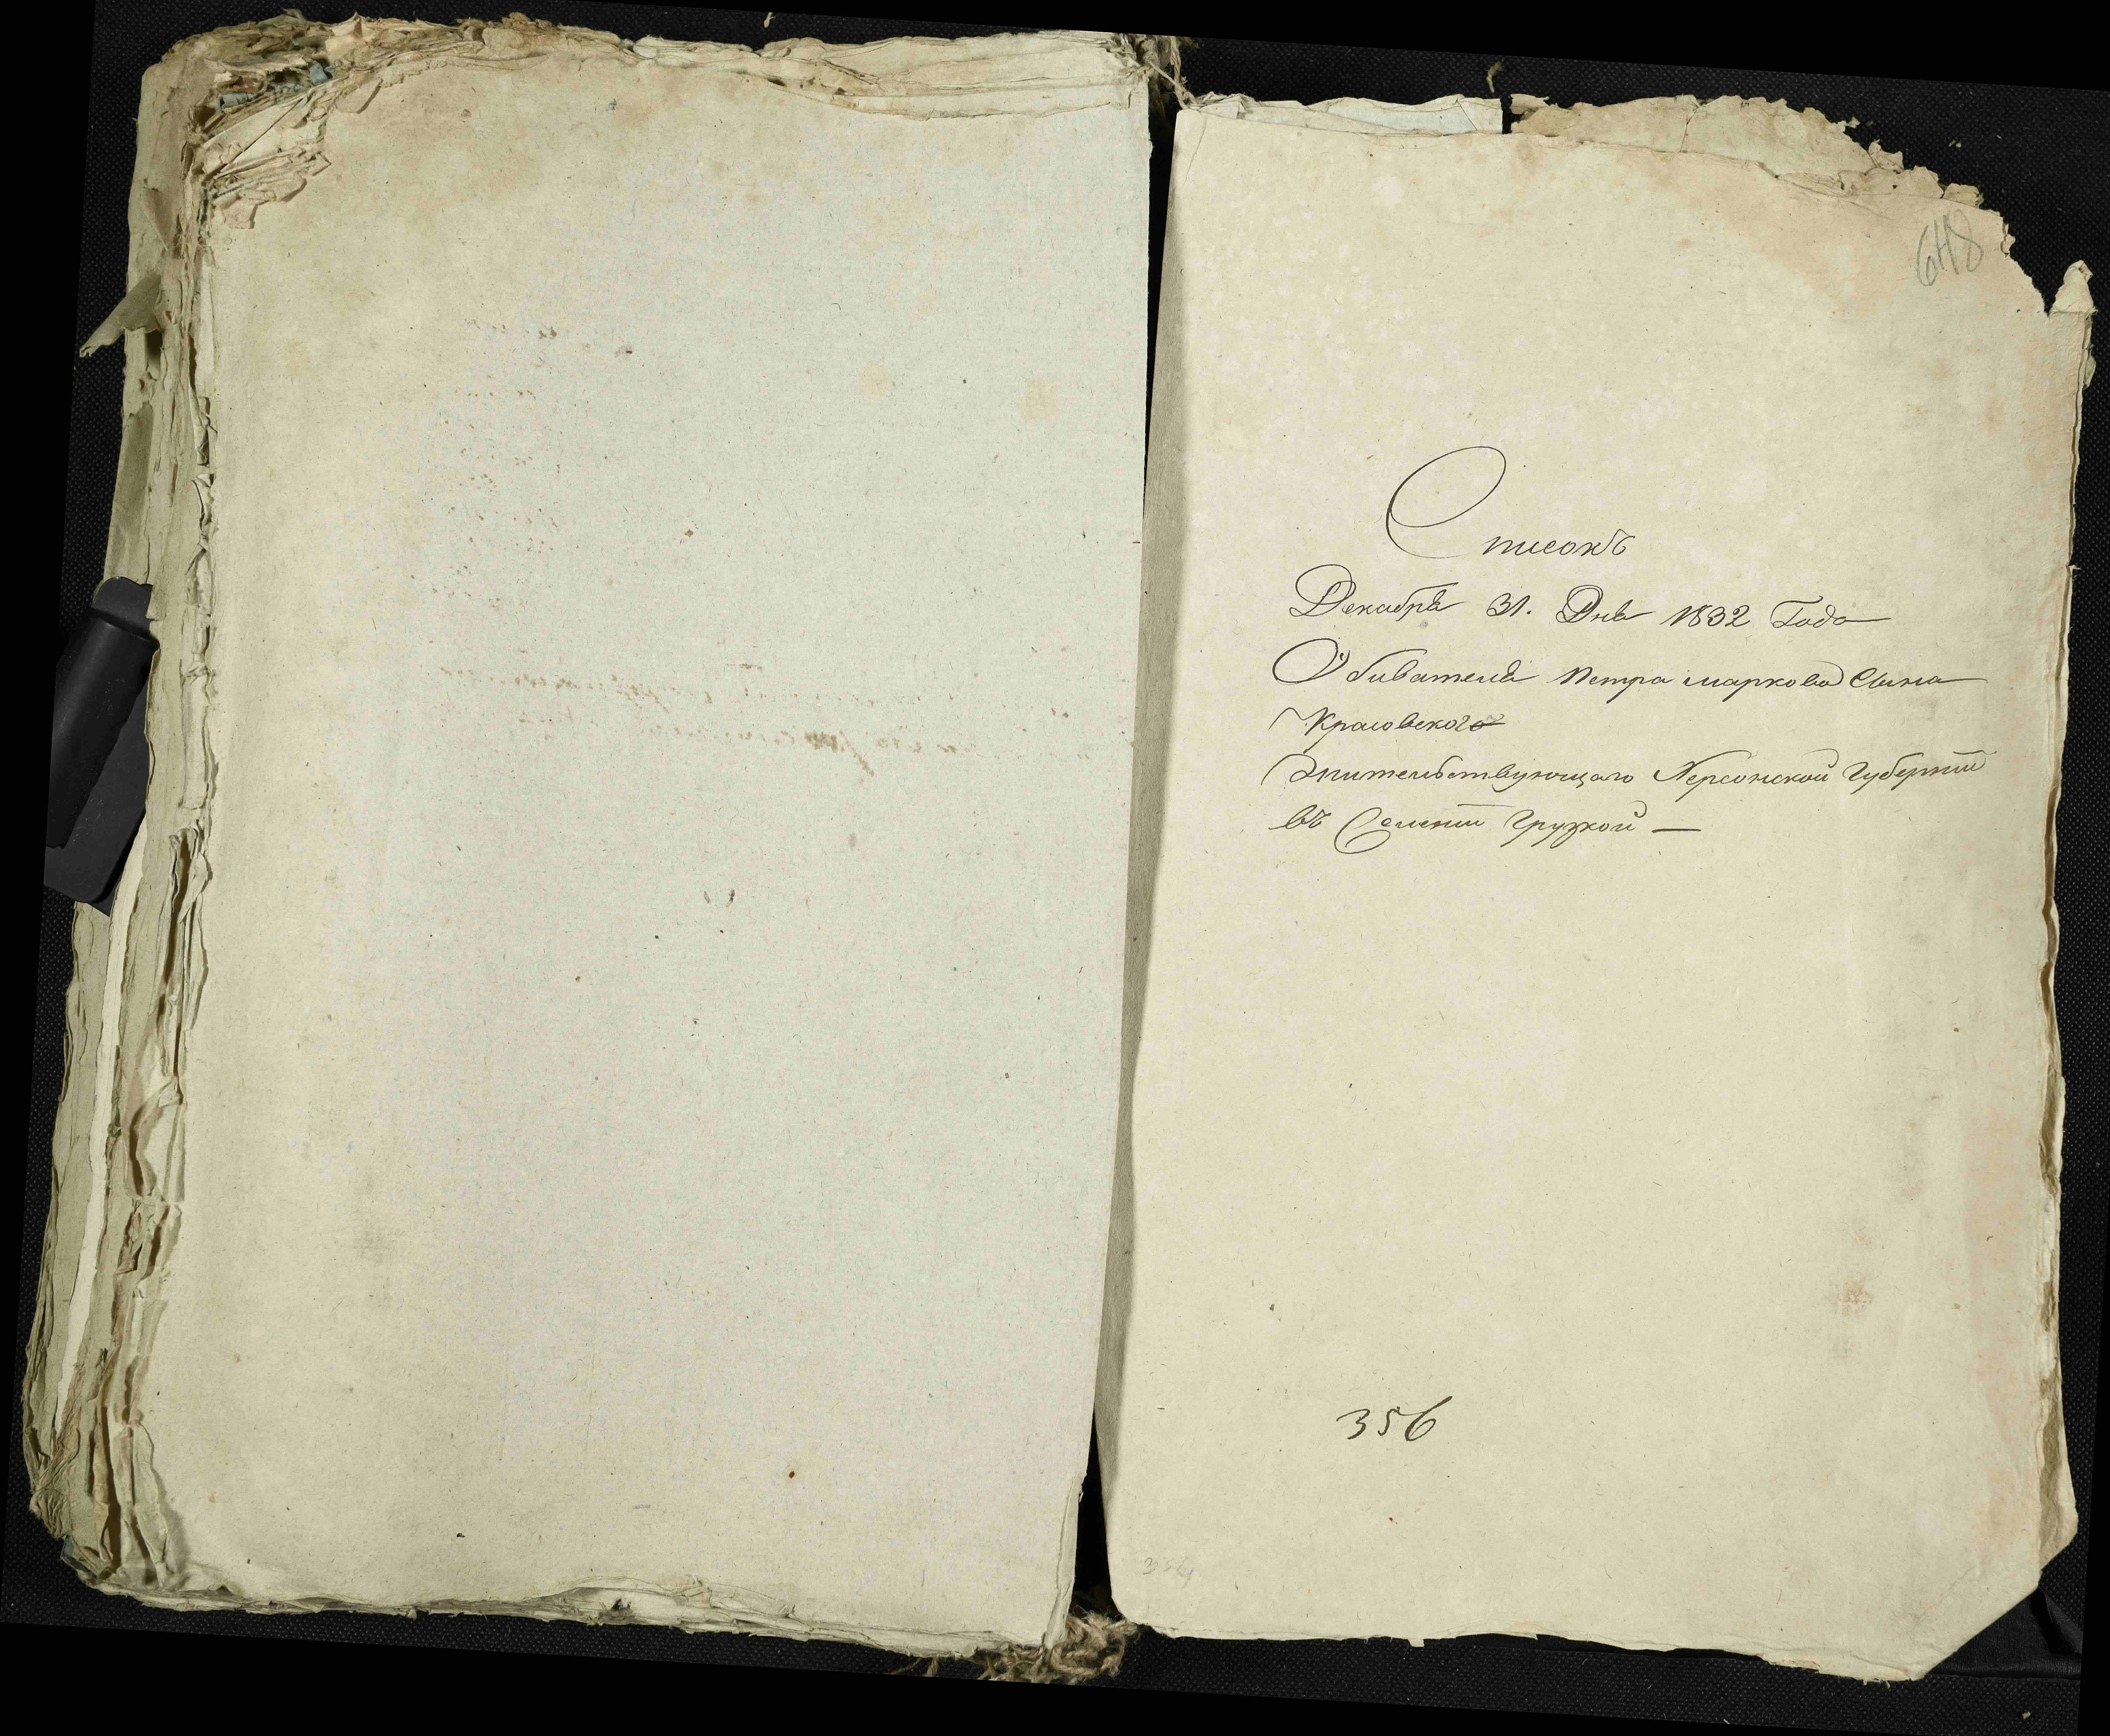 648
Списокъ
Декабря 31. Дня 1832 Года
Обивателя Петра маркова Сина
Красовского
Жительствующаго Херсонской Губернїи
въ Селенїи Грузкой —
356